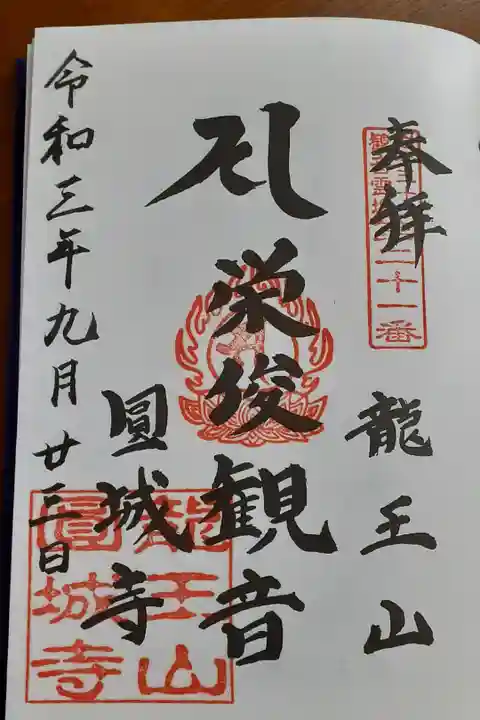 奉拝
二十一番
龍王山
栄俊観音
圓城寺
令和三年九月廿三日
龍王山
圓城寺